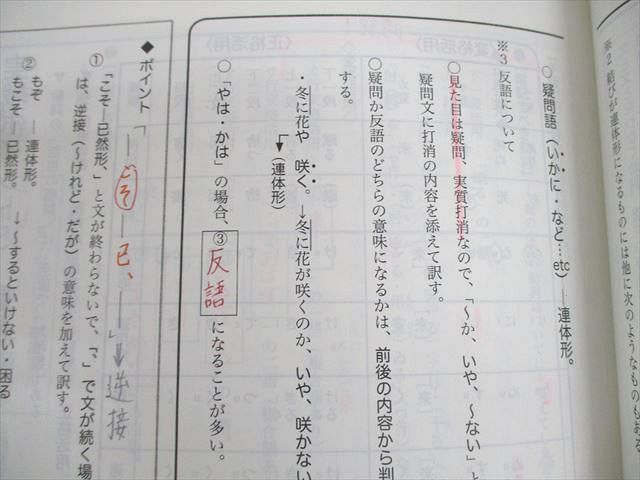 ※2 結びが連体形になるものには他に次のようなものもある
○ 疑問語（いかに・など…etc）―連体形。
※3 反語について
○見た目は疑問、実質打消なので、「〜か、いや、〜ない」と
疑問文に打消の内容を添えて訳す。
○疑問か反語のどちらの意味になるかは、前後の内容から判
する。
・冬に花や 咲く。→冬に花が咲くのか、いや、咲かない
（連体形）
○「やは・かは」の場合、③反語になることが多い。
◆ ポイント 「―こそ―已、――」➡逆接
① 「こそ―已然形、」と文が終わらないで、「、」で文が続く場
は、逆接（〜けれど・だが）の意味を加えて訳す。
② もぞ ― 連体形。
もこそ ― 已然形。 → 〜するといけない・困る